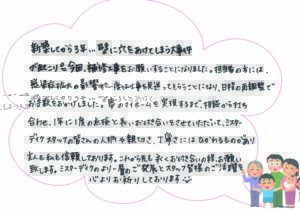 新築してから3年…壁に穴をあけてしまう大事件
が起こり、今回、補修工事をお願いすることになりました。担当者の方には、
感染症拡大の影響で一度は工事を見送ってもらうことになり、日程の再調整で
お手数をおかけしました。夢のマイホームを実現するまで、相談から打ち
合わせ、1年に1度の点検と長いお付き合いをさせていただいて、ミスター
デイク スタッフの皆さんの人柄や親切さ、丁寧さには
主人も私も信頼しております。これから先も永くお付き合いの程、お願い
致します。ミスターデイクのより一層のご発展とスタッフ皆様のご活躍を
心よりお祈りしております